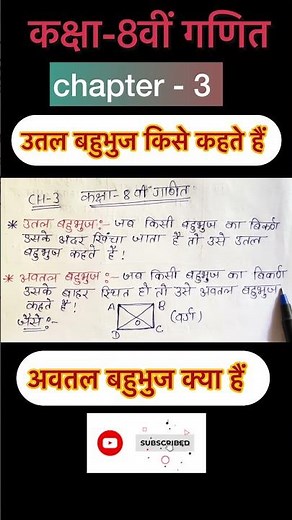 कक्षा-8वीं गणित
chapter - 3
उतल बहुभुज किसे कहते हैं
CH-3 कक्षा - 8 वीं गणित
* उतल बहुभुज :- जब किसी बहुभुज का विकर्ण
उसके अंदर खिंचा जाता है तो उसे उतल
बहुभुज कहते है !
* अवतल बहुभुज :- जब किसी बहुभुज का विकर्ण
उसके बाहर स्थित हो तो उसे अवतल बहुभुज
कहते है !
जैसे :- A B (वर्ग)
D C
अवतल बहुभुज क्या हैं
SUBSCRIBED